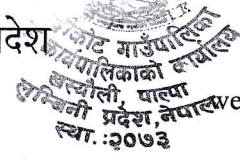 I.R.
प्रदेश
गाउँपालिका
गाउँपालिकाको कार्यालय
पाल्पा
लुम्बिनी प्रदेश, नेपाल
we
स्था. :२०७३